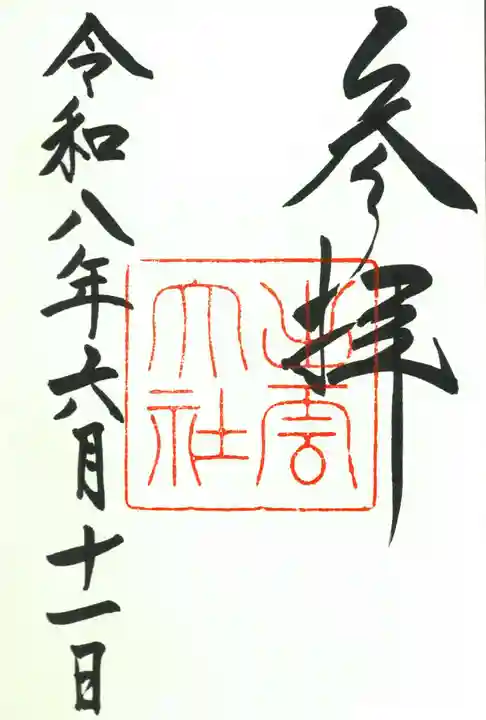 参拝
出雲
大社
令和八年六月十一日